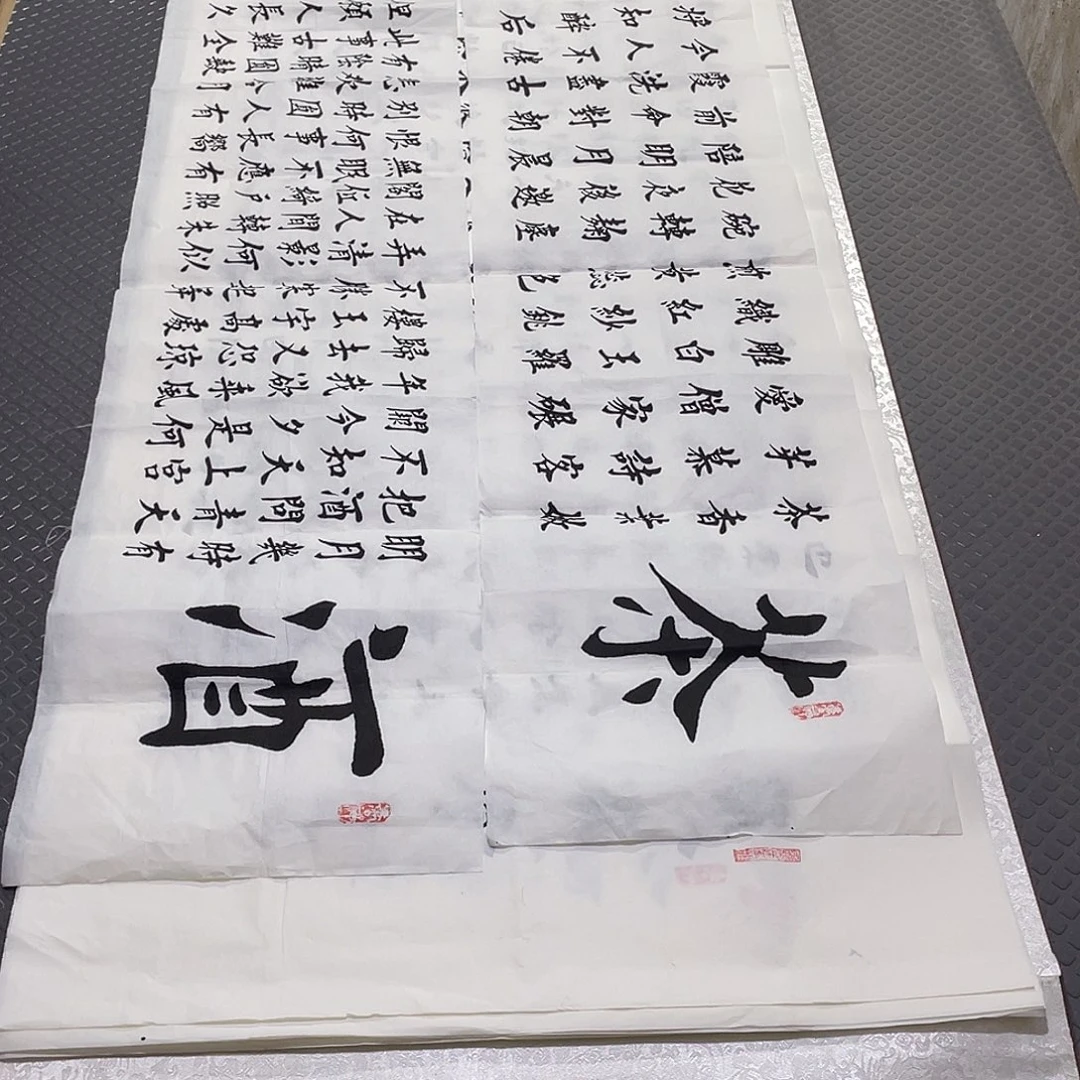 茶
茶香葉嫩
芽慕詩客
愛僧家碾
雕白玉羅
織紅紗銚
煎黃蕊色
碗轉麴塵
花夜後邀
陪明月晨
前命對朝
霞洗盡古
今人不倦
將知醉后
酒
明月幾時有
把酒問青天
不知天上宮
闕今夕是何
年我欲乘風
歸去又恐琼
樓玉宇高處
不勝寒起舞
弄清影何似
在人間轉朱
閣低綺戶照
無眠不應有
恨何事長嚮
别時圓人有
悲歡離合月
有陰晴圓缺
此事古難全
但願人長久